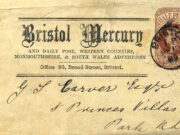 Bristol Mercury
AND DAILY POST, WESTERN COUNTIES,
MONMOUTHSHIRE, & SOUTH WALES ADVERTISER
Office 33, Broad Street, Bristol.
G S Carver Esqre
8 Princes Villas
Park Rd